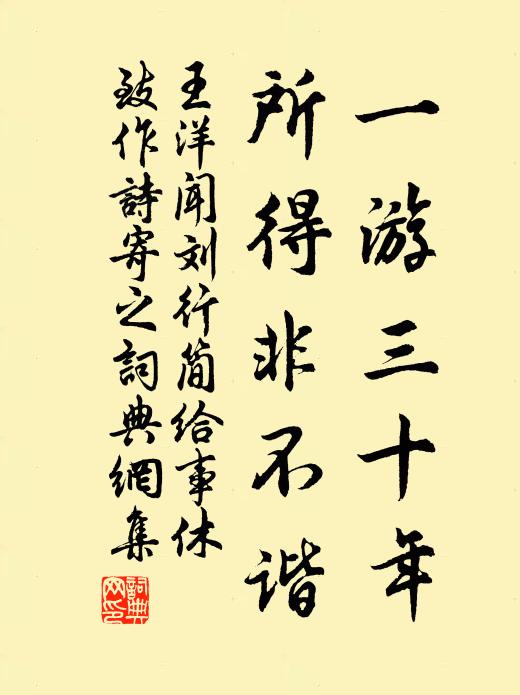 一游三十年
所得非不谐
王洋闻刘行简给事休
致作詩寄之詞典網集
詞典網印